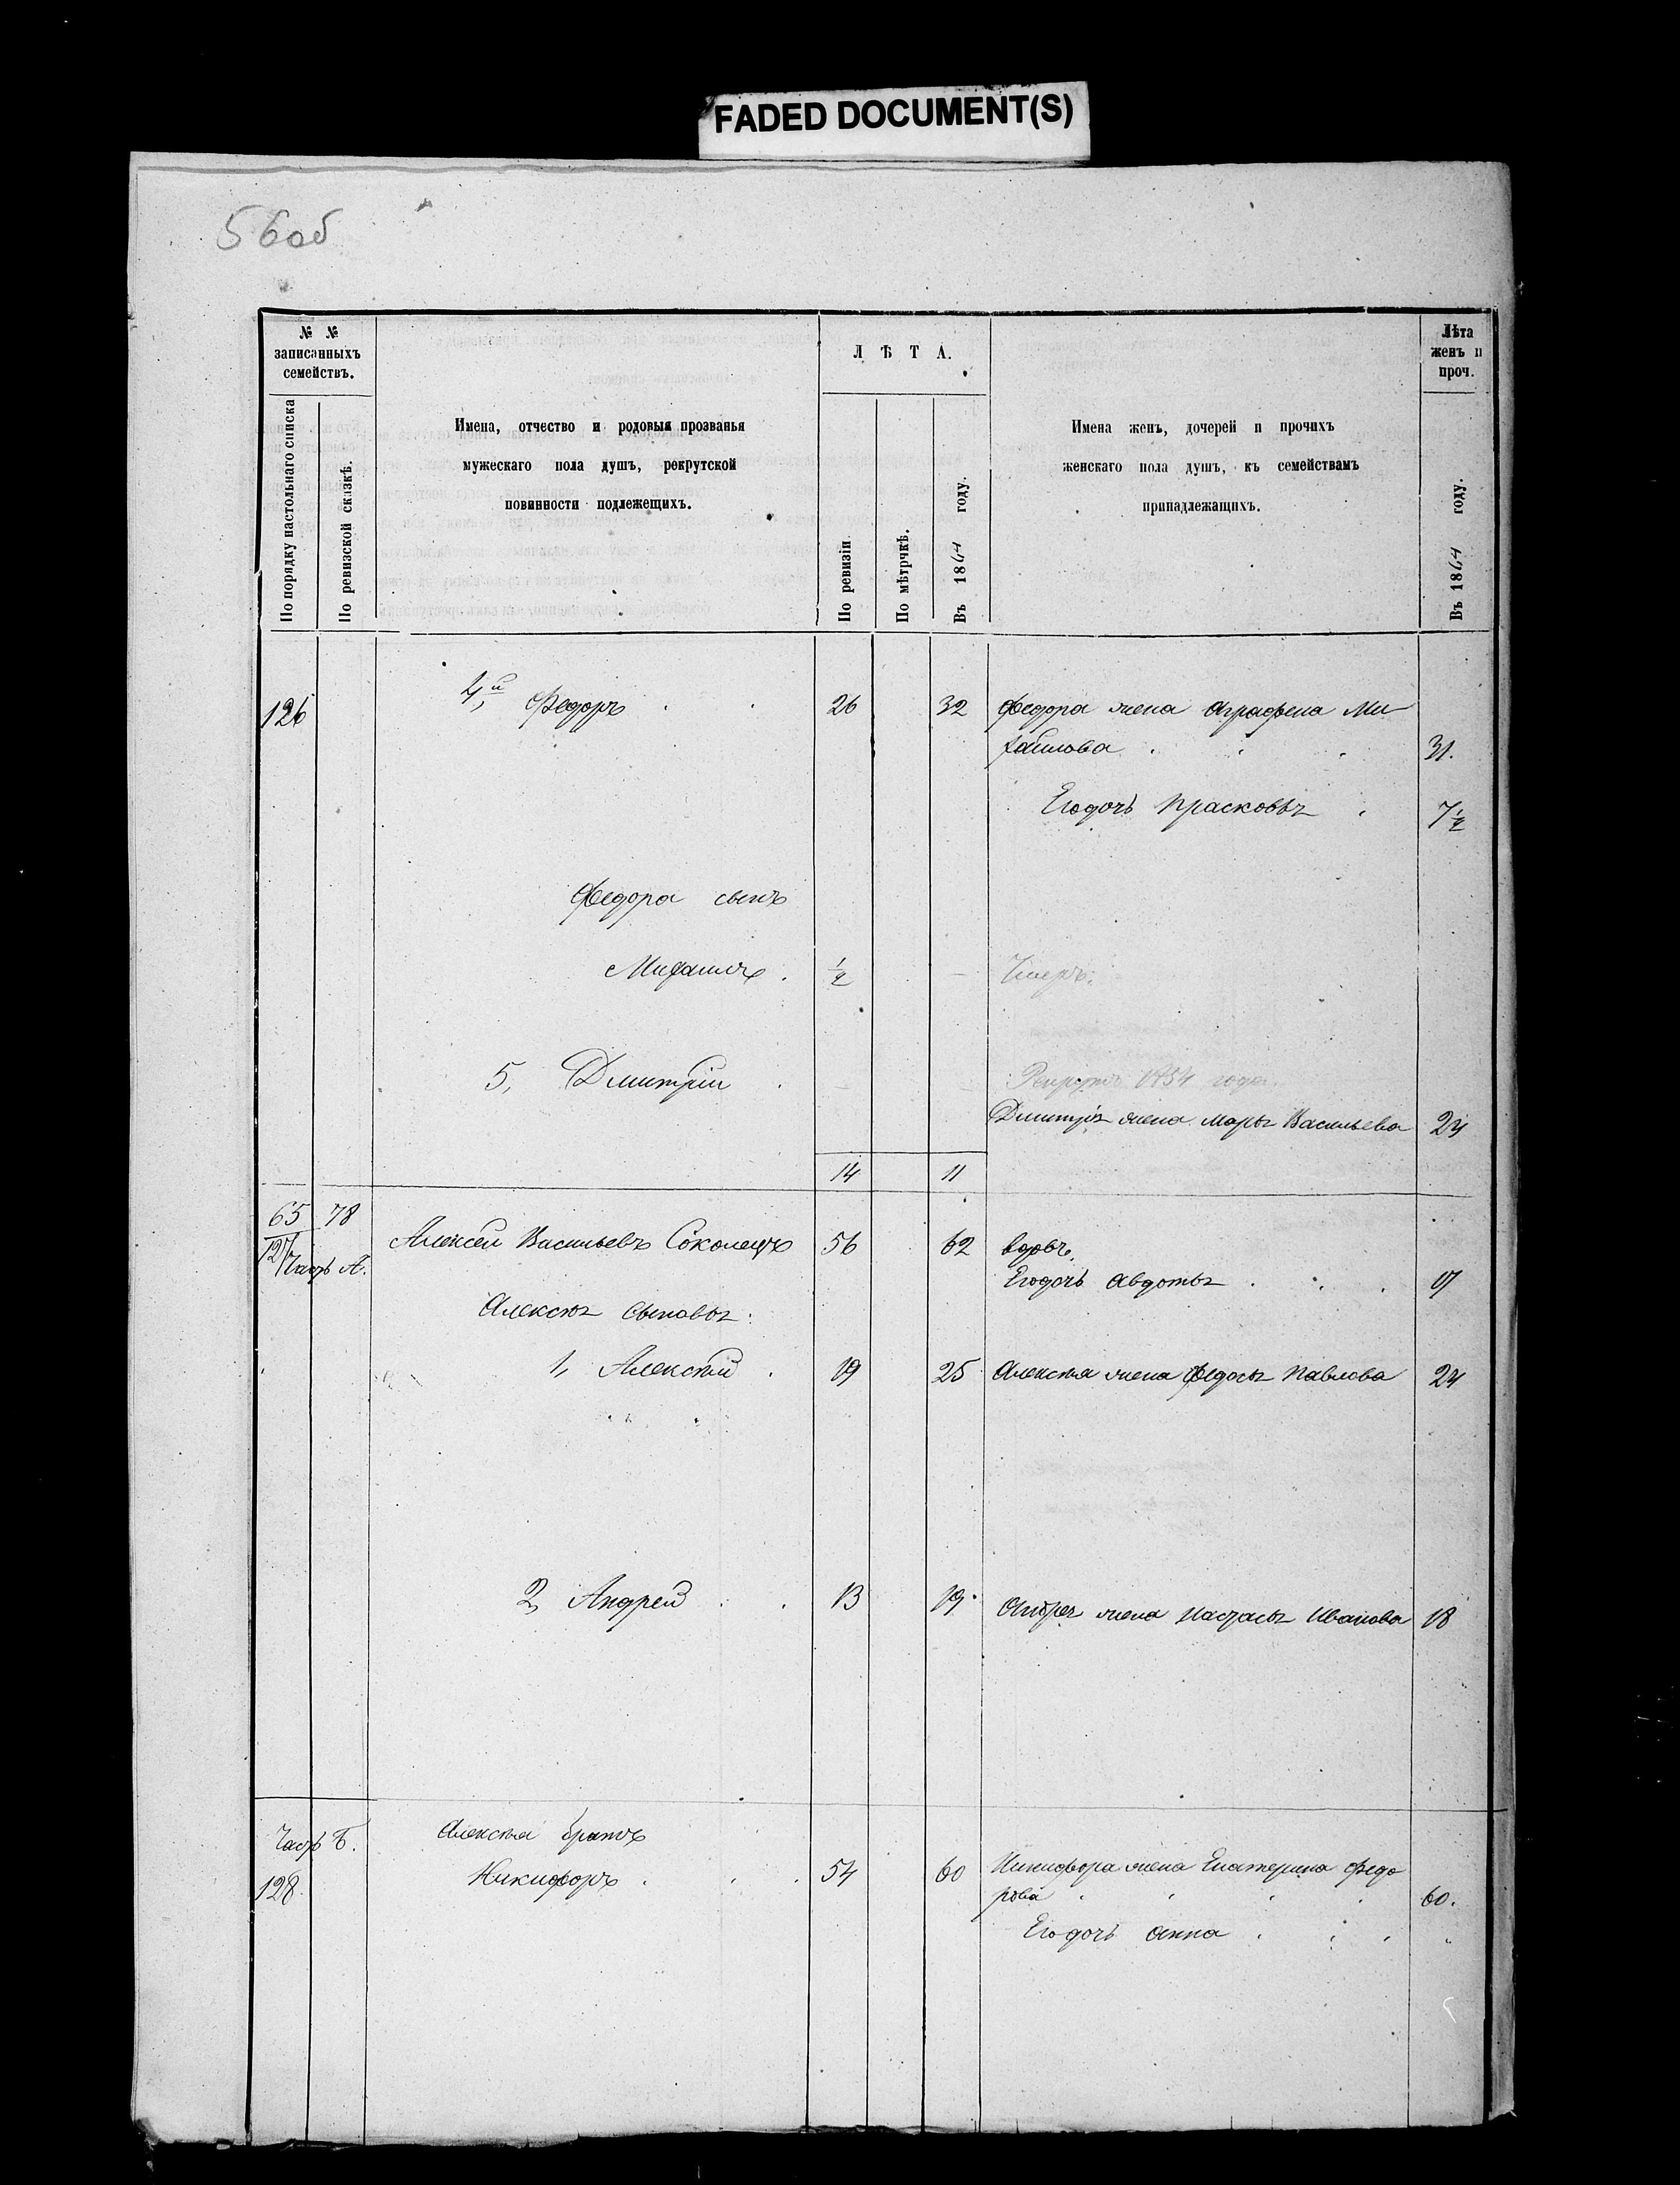 FADED DOCUMENT(S)
56об
№ №
записанныхъ
семействъ.
По порядку настольнаго списка
По ревизской сказкѣ.
Имена, отчество и родовыя прозванья
мужескаго пола душъ, рекрутской
повинности подлежещихъ.
Л Ѣ Т А.
По ревизіи
По мѣтрчкѣ.
Въ 1864 году.
Имена женъ, дочерей и прочихъ
женскаго пола душъ, къ семействамъ
принадлежащихъ.
Лѣта
женъ и
проч.
Въ 1864 году.
126 4, й Федоръ 26 32 Федора жена Аграфена Ми
хаилова 31.
Его дочь Прасковья 7 1/2
Федора сынъ
Михаилъ 1/2 Умеръ.
5, Дмитрій Рекрутъ 1854 года.
Дмитрія жена Марья Васильева 24
14 11
65 78
127 Часть А. Алексей Васильевъ Соколецъ 56 62 вдовъ.
Его дочь Авдотья 17
Алексея сыновья:
1, Алексѣй 19 25 Алексѣя жена Федосья Павлова 24
2, Андрей 13 19 Андрея жена Настасья Иванова 18
Часть Б. Алексѣя братъ
128 Никифоръ 54 60 Никифора жена Екатерина Федо
рова 60.
Его дочь Анна "